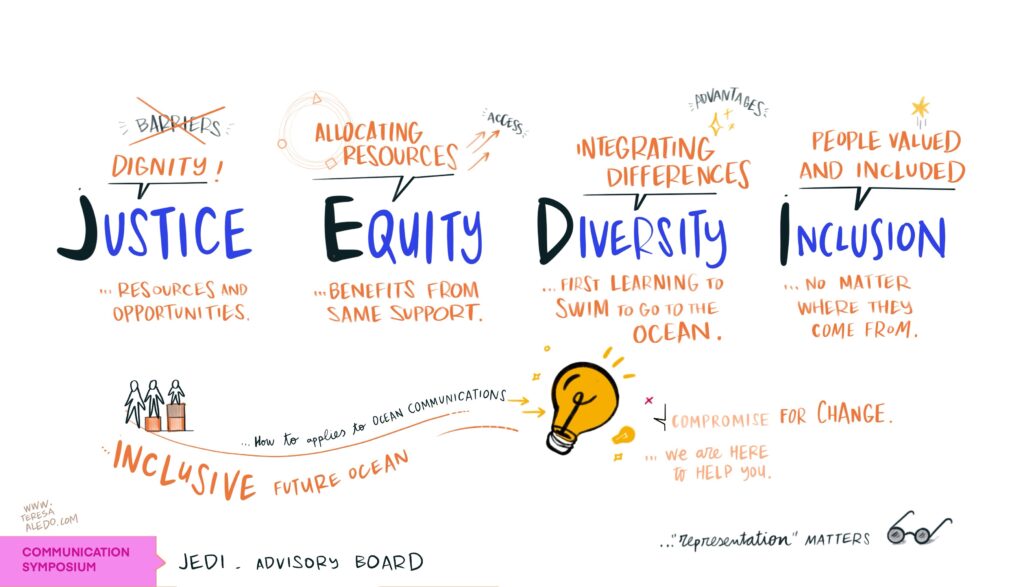 BARRIERS
DIGNITY!
JUSTICE
... RESOURCES AND
OPPORTUNITIES.
ALLOCATING
RESOURCES
ACCESS
EQUITY
...BENEFITS FROM
SAME SUPPORT.
ADVANTAGES
INTEGRATING
DIFFERENCES
DIVERSITY
...FIRST LEARNING TO
SWIM TO GO TO THE
OCEAN.
PEOPLE VALUED
AND INCLUDED
INCLUSION
...NO MATTER
WHERE THEY
COME FROM.
...How to applies to OCEAN COMMUNICATIONS
...INCLUSIVE FUTURE OCEAN
COMPROMISE FOR CHANGE.
...We are HERE
to HELP YOU.
..."representation" MATTERS
WWW.
TERESA
ALEDO.COM
COMMUNICATION
SYMPOSIUM
JEDI - ADVISORY BOARD